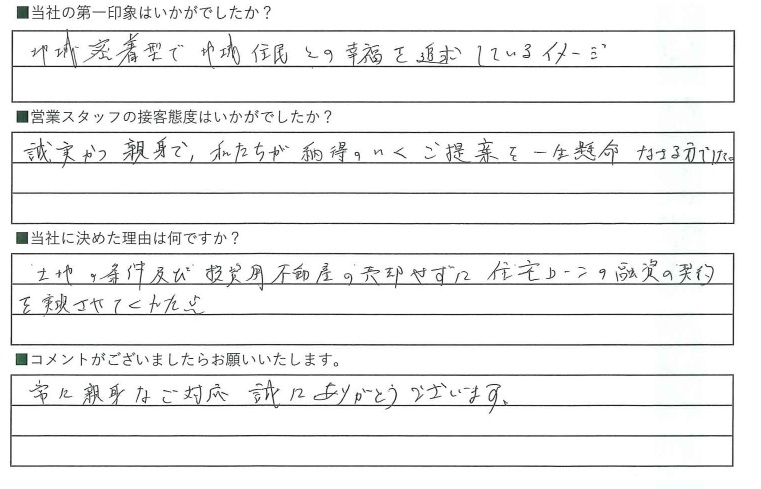 ■当社の第一印象はいかがでしたか？
地域密着型で地域住民との幸福を追求しているイメージ
■営業スタッフの接客態度はいかがでしたか？
誠実かつ親身で、私たちが納得のいくご提案を一生懸命なさる方でした。
■当社に決めた理由は何ですか？
土地の条件及び投資用不動産の売却せずに住宅ローンの融資の契約
を実現させてくれた点
■コメントがございましたらお願いいたします。
常に親身なご対応誠にありがとうございます。